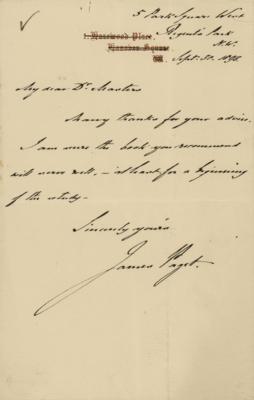 5 Park Square West
Regents Park
N.W.
1. Harewood Place,
Hanover Square
Sept. 30. 1895
My dear Dr. Masters
Many thanks for your advice.
I am sure the book you recommend
will serve well, – at least for a beginning
of the study –
Sincerely yours
James Paget.